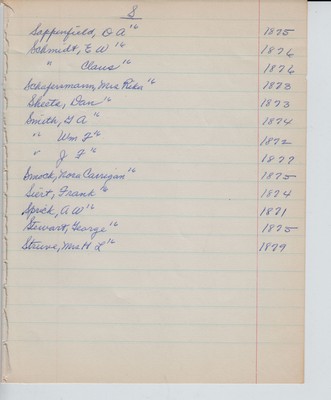 S
Sappenfield, O A '16 1875
Schmidt, E W '16 1876
" Claus '16 1876
Schafersmann, Mrs Rika '16 1873
Sheets, Dan '16 1873
Smith, G A '16 1874
" Wm F '16 1872
" J F '16 1877
Snook, Nora Carrigan '16 1875
Siert, Frank '16 1874
Sprick, A W '16 1871
Stewart, George '16 1875
Struve, Mrs H L '16 1879